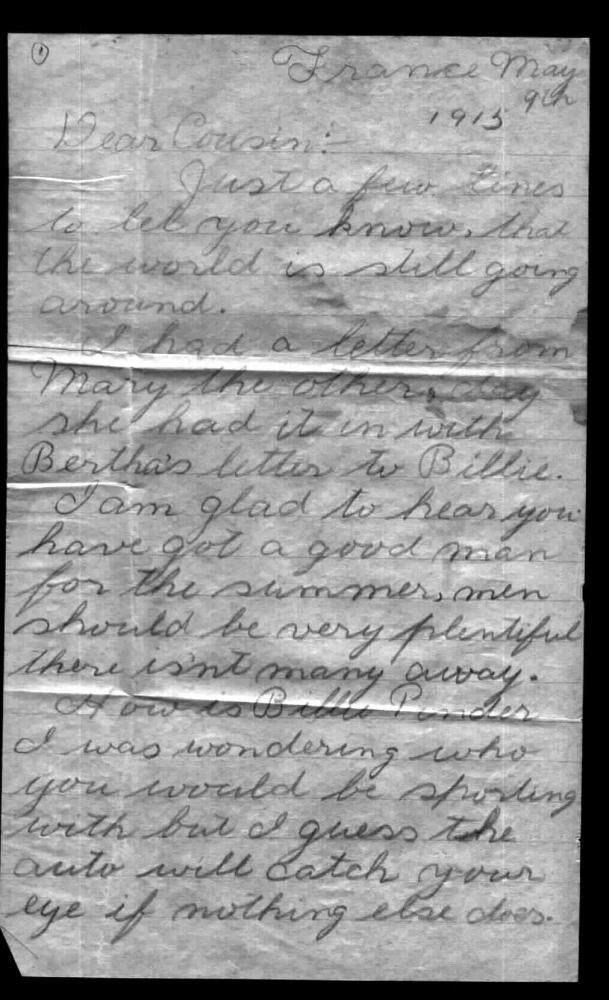 ①
France May
9th
1915
Dear Cousin:-
Just a few lines
to let you know, that
the world is still going
around.
I had a letter from
Mary the other day
she had it in with
Bertha's letter to Billie.
I am glad to hear you
have got a good man
for the summer, men
should be very plentiful
there isn't many away.
How is Billie Punder
I was wondering who
you would be sporting
with but I guess the
auto will catch your
eye if nothing else does.